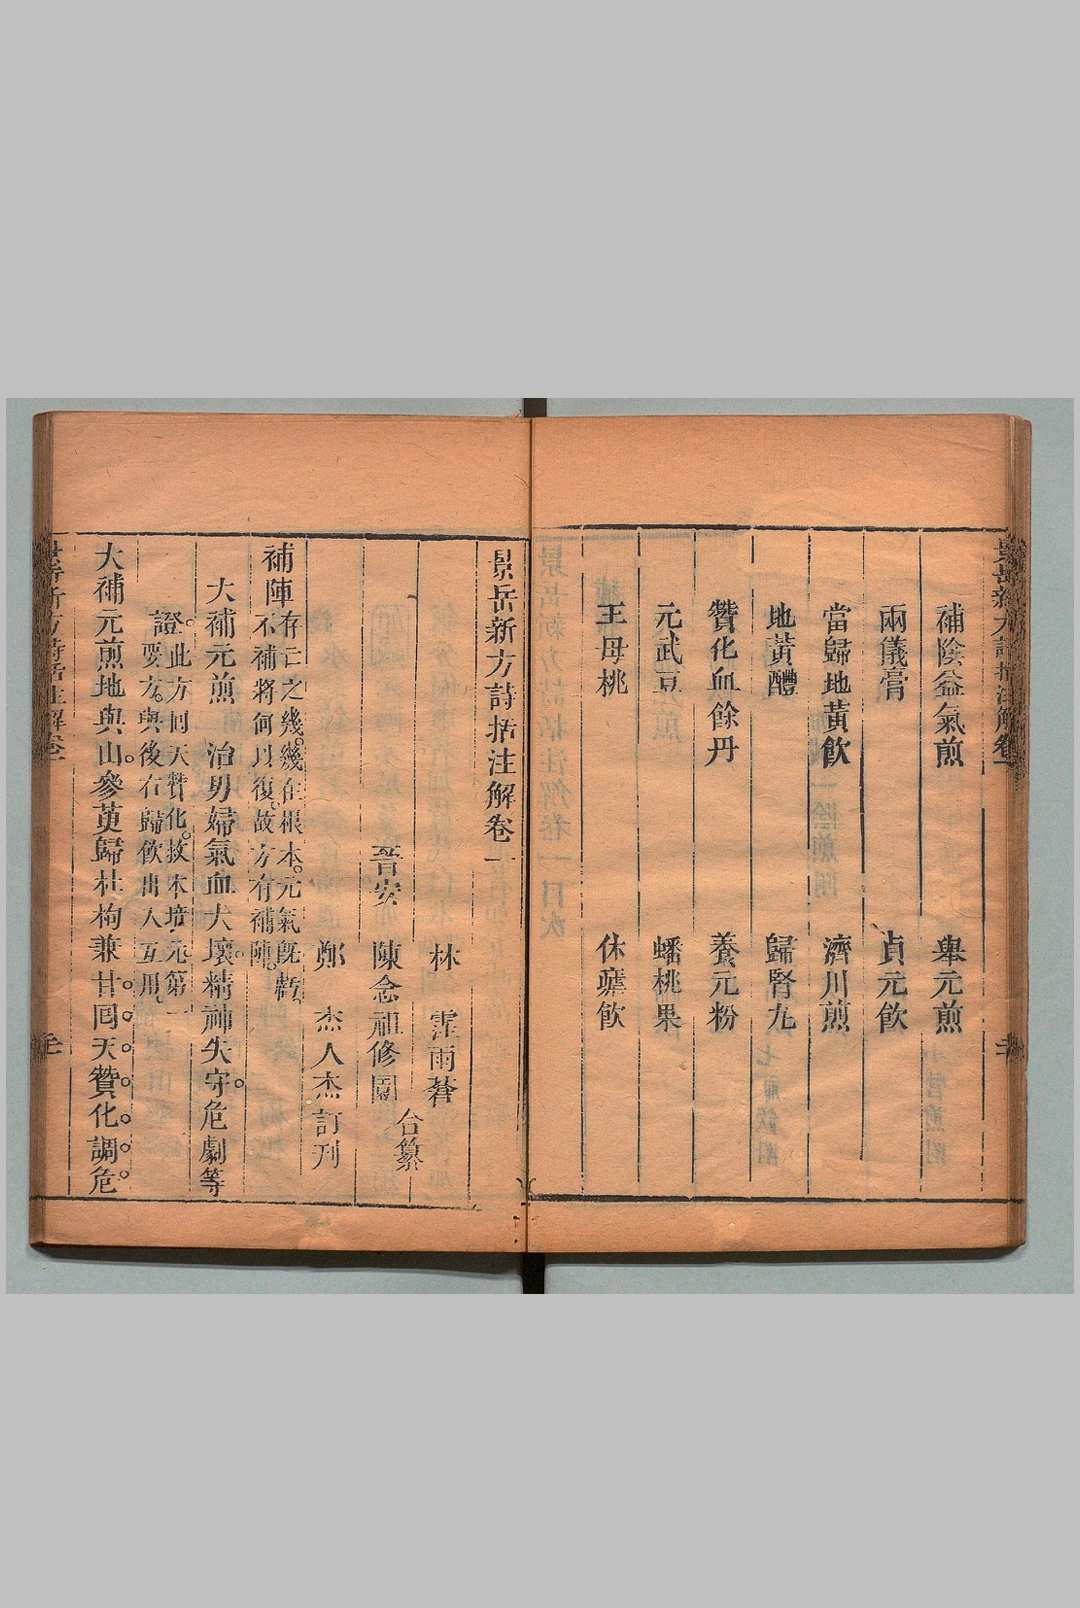 補陰益氣煎 舉元煎
兩儀膏 貞元飲
當歸地黃飲 濟川煎
地黃醴 歸腎丸
贊化血餘丹 養元粉
元武豆 蟠桃果
王母桃 休瘧飲
景岳新方詩括注解卷一
林霪雨蒼
晉安 陳念祖修園 合纂
鄭杰人杰訂刊
補陣 存亡之幾。幾在根本。元氣既虧。
不補將何以復。故方有補陣。
大補元煎 治男婦氣血大壞。精神失守。危劇等
證。此方囘天贊化。救本培元第一
要方。與後右歸飲出入互用。
大補元煎地與山。參萸歸杜枸兼甘。囘天贊化調危
景岳新方詩括注解卷一